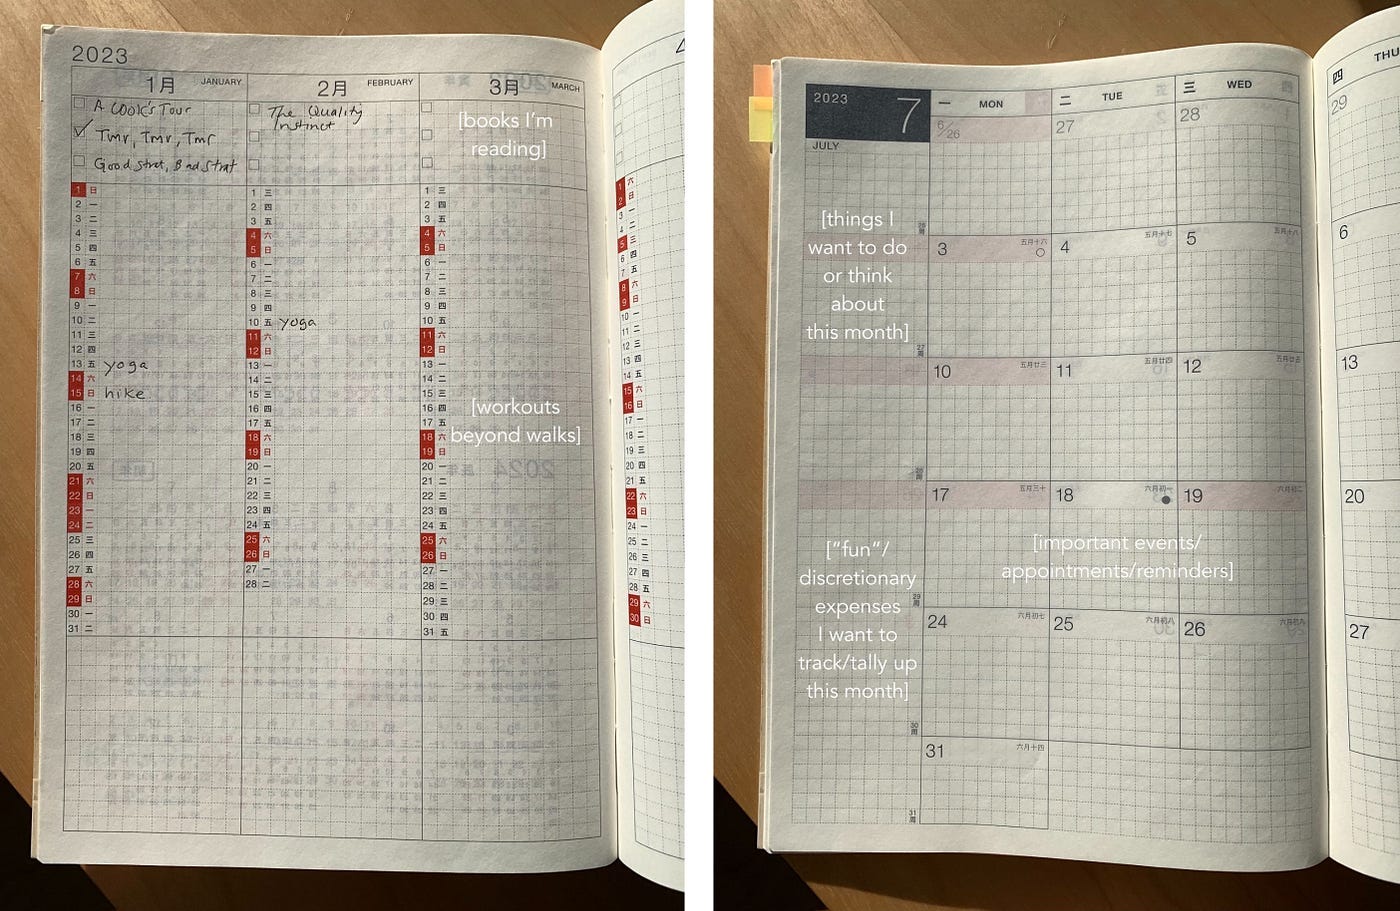 2023
1月 JANUARY
A Cook's Tour
Tmr, Tmr, Tmr
Good Strat, Bad Strat
1 日
2 一
3 二
4 三
5 四
6 五
7 六
8 日
9 一
10 二
11 三
12 四
13 五 yoga
14 六
15 日 hike
16 一
17 二
18 三
19 四
20 五
21 六
22 日
23 一
24 二
25 三
26 四
27 五
28 六
29 日
30 一
31 二
2月 FEBRUARY
The Quality
Instinct
1 三
2 四
3 五
4 六
5 日
6 一
7 二
8 三
9 四
10 五 yoga
11 六
12 日
13 一
14 二
15 三
16 四
17 五
18 六
19 日
20 一
21 二
22 三
23 四
24 五
25 六
26 日
27 一
28 二
3月 MARCH
[books I'm
reading]
1 三
2 四
3 五
4 六
5 日
6 一
7 二
8 三
9 四
10 五
11 六
12 日
13 一
14 二
15 三
16 四
17 五
18 六
19 日
20 一
21 二
22 三
23 四
24 五
25 六
26 日
27 一
28 二
29 三
30 四
31 五
[workouts
beyond walks]
1 六
2 日
3 一
4 二
5 三
6 四
7 五
8 六
9 日
10 一
11 二
12 三
13 四
14 五
15 六
16 日
17 一
18 二
19 三
20 四
21 五
22 六
23 日
24 一
25 二
26 三
27 四
28 五
29 六
30 日
2023 7
JULY
一 MON 二 TUE 三 WED 四 THU
6/26 27 28 29
[things I
want to do
or think
about
this month]
3 五月十六 4 五月十七 5 五月十八 6
27周
10 五月廿三 11 五月廿四 12 五月廿五 13
17 五月三十 18 六月初一 19 六月初二 20
["fun"/
discretionary
expenses
I want to
track/tally up
this month]
[important events/
appointments/reminders]
29周
24 六月初七 25 六月初八 26 六月初九 27
30周
31 六月十四
31周